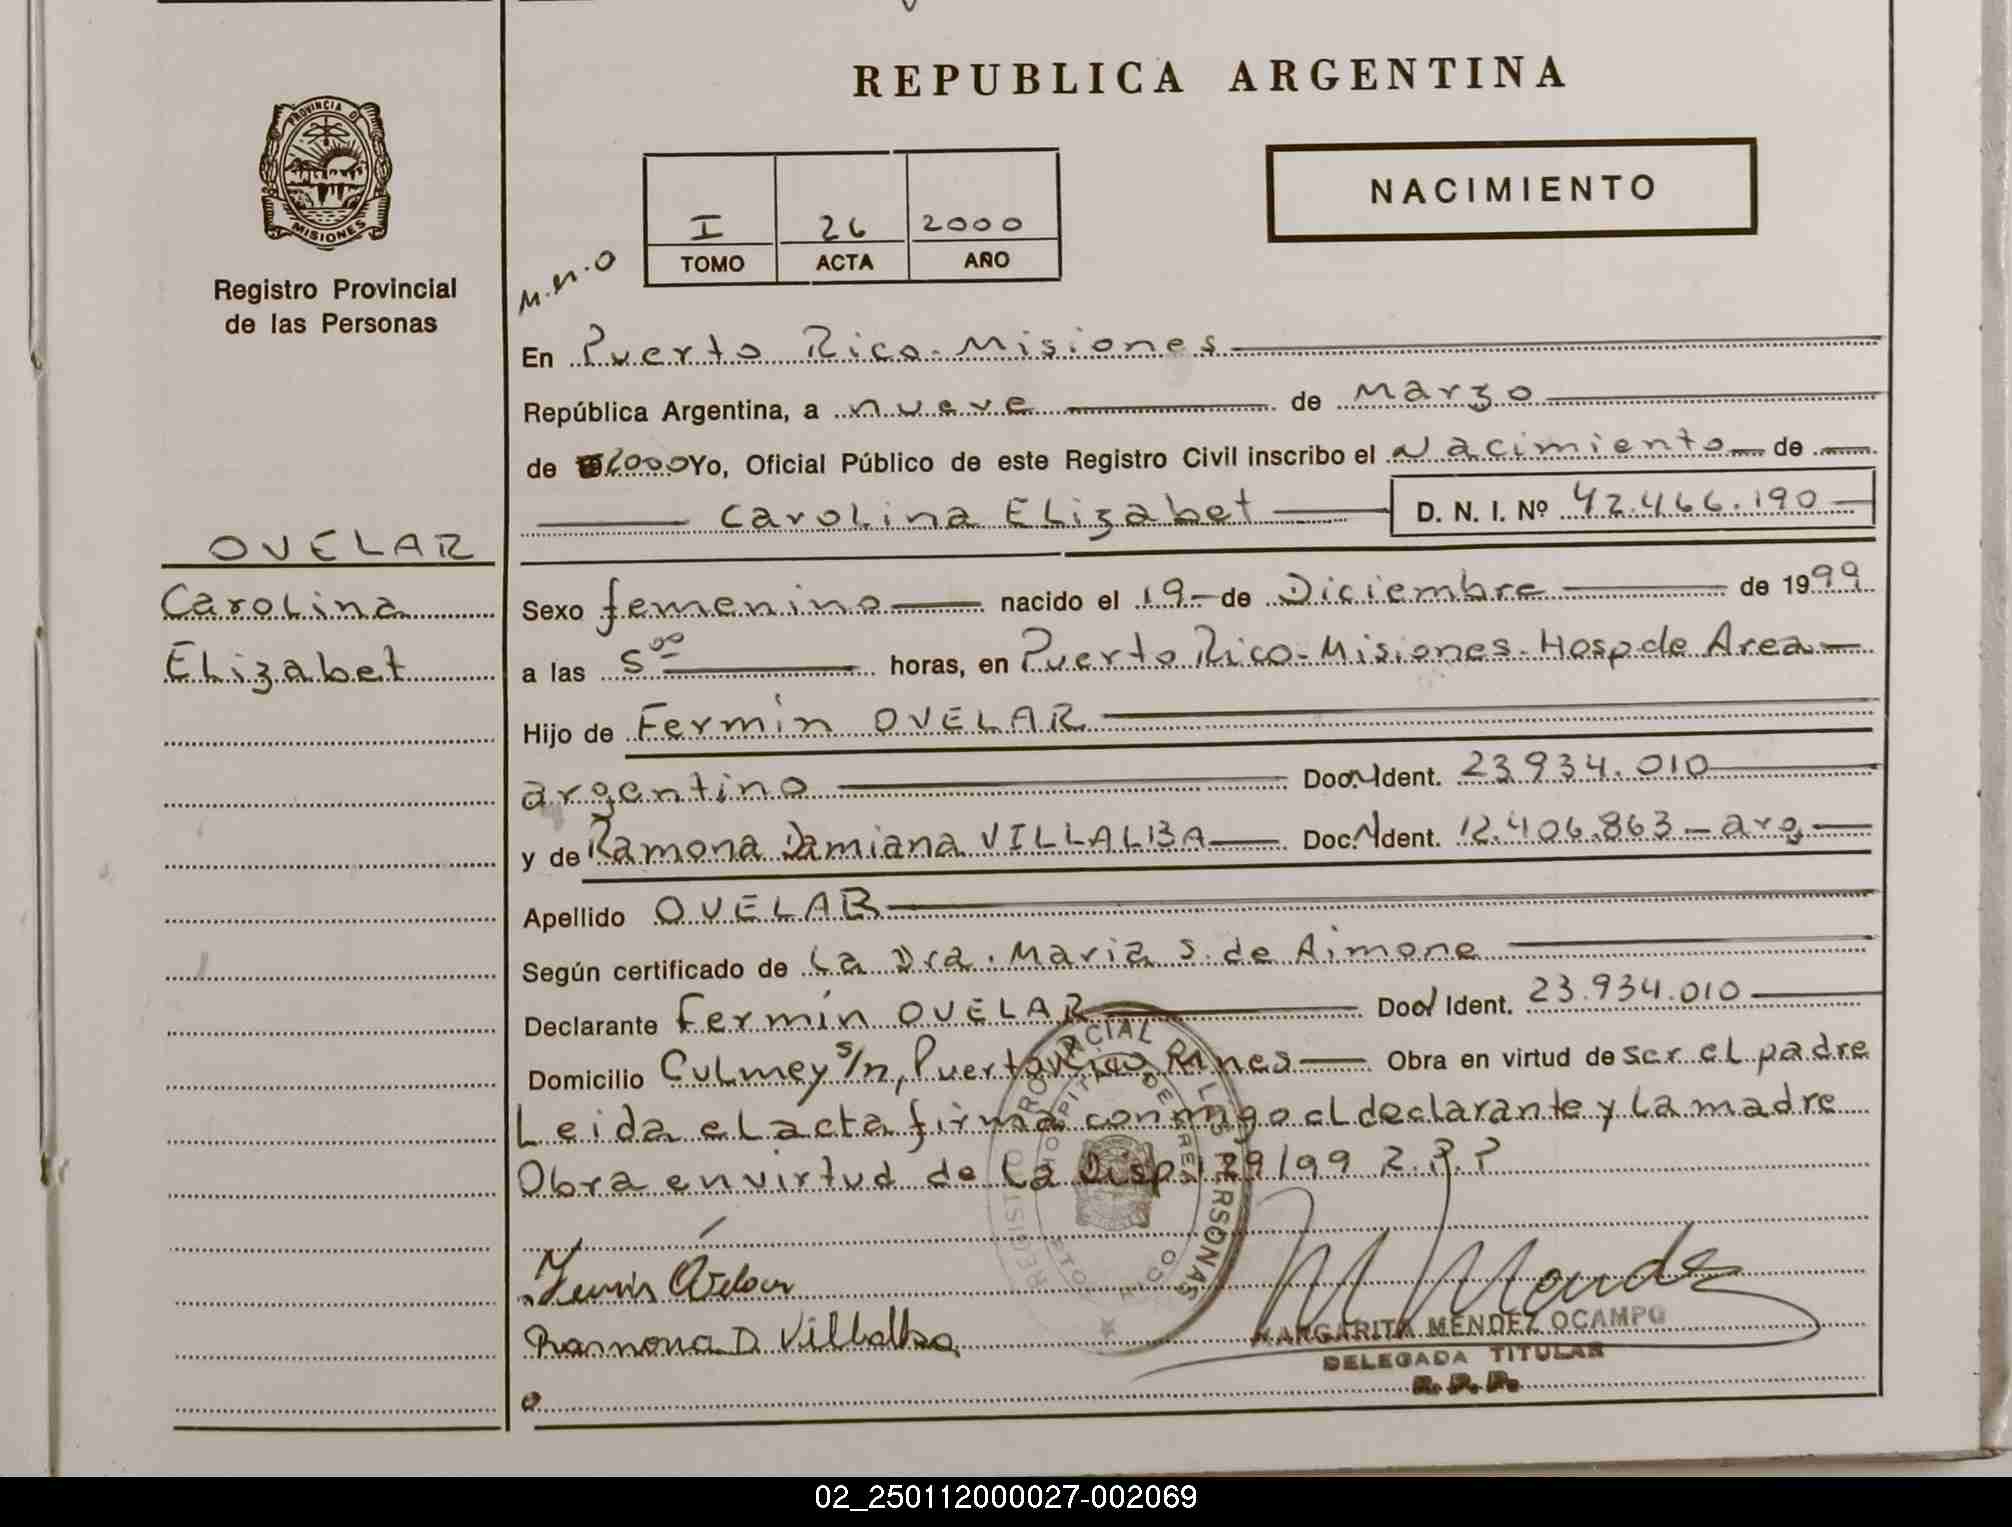 REPUBLICA ARGENTINA
PROVINCIA DE
MISIONES
Registro Provincial
de las Personas
NACIMIENTO
I 26 2000
TOMO ACTA AÑO
M.N.O
En Puerto Rico - Misiones
República Argentina, a nueve de Marzo
de 2000 Yo, Oficial Público de este Registro Civil inscribo el Nacimiento de
Carolina Elizabet D. N. I. Nº 42.466.190
OVELAR
Carolina
Elizabet
Sexo femenino nacido el 19 de Diciembre de 1999
a las 5 00 horas, en Puerto Rico - Misiones - Hosp de Area
Hijo de Fermín OVELAR
argentino Doc. Ident. 23.934.010
y de Ramona Damiana VILLALBA Doc. Ident. 12.406.863 - arg.
Apellido OVELAR
Según certificado de La Dra. Maria S. de Aimone
Declarante Fermín OVELAR Doc. Ident. 23.934.010
Domicilio Culmey s/n, Puerto Rico, Mnes Obra en virtud de ser el padre
Leida el acta firma conmigo el declarante y La madre
Obra en virtud de La Disp. 129/99 R.P.P
REGISTRO PROVINCIAL DE LAS PERSONAS
HOSPITAL DE AREA
PTO RICO
Fermín Ovelar
Ramona D Villalba
M Mendez
MARGARITA MENDEZ OCAMPO
DELEGADA TITULAR
R. P. P.
02_250112000027-002069